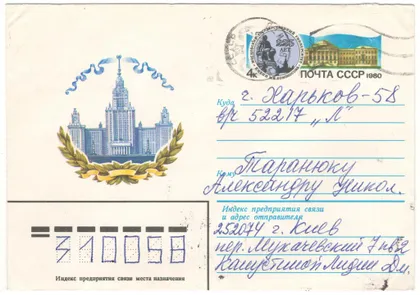 4к
ПОЧТА СССР 1980
Куда г. Харьков-58
в/ч 52217 „Л”
Кому Таранюку
Александру Никол.
Индекс предприятия связи
и адрес отправителя
252074 г. Киев
пер. Мукачевский 7 кв 2
Капустиной Лидии Дм.
310058
Индекс предприятия связи места назначения